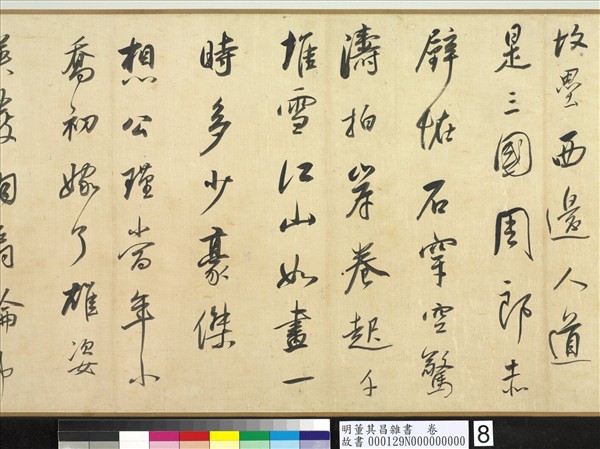 故壘西邊人道
是三國周郎赤
壁怪石穿空驚
濤拍岸卷起千
堆雪江山如畫一
時多少豪傑
想公瑾當年小
喬初嫁了雄姿
發羽扇綸巾
明董其昌雜書 卷
故書 000129N000000000
8